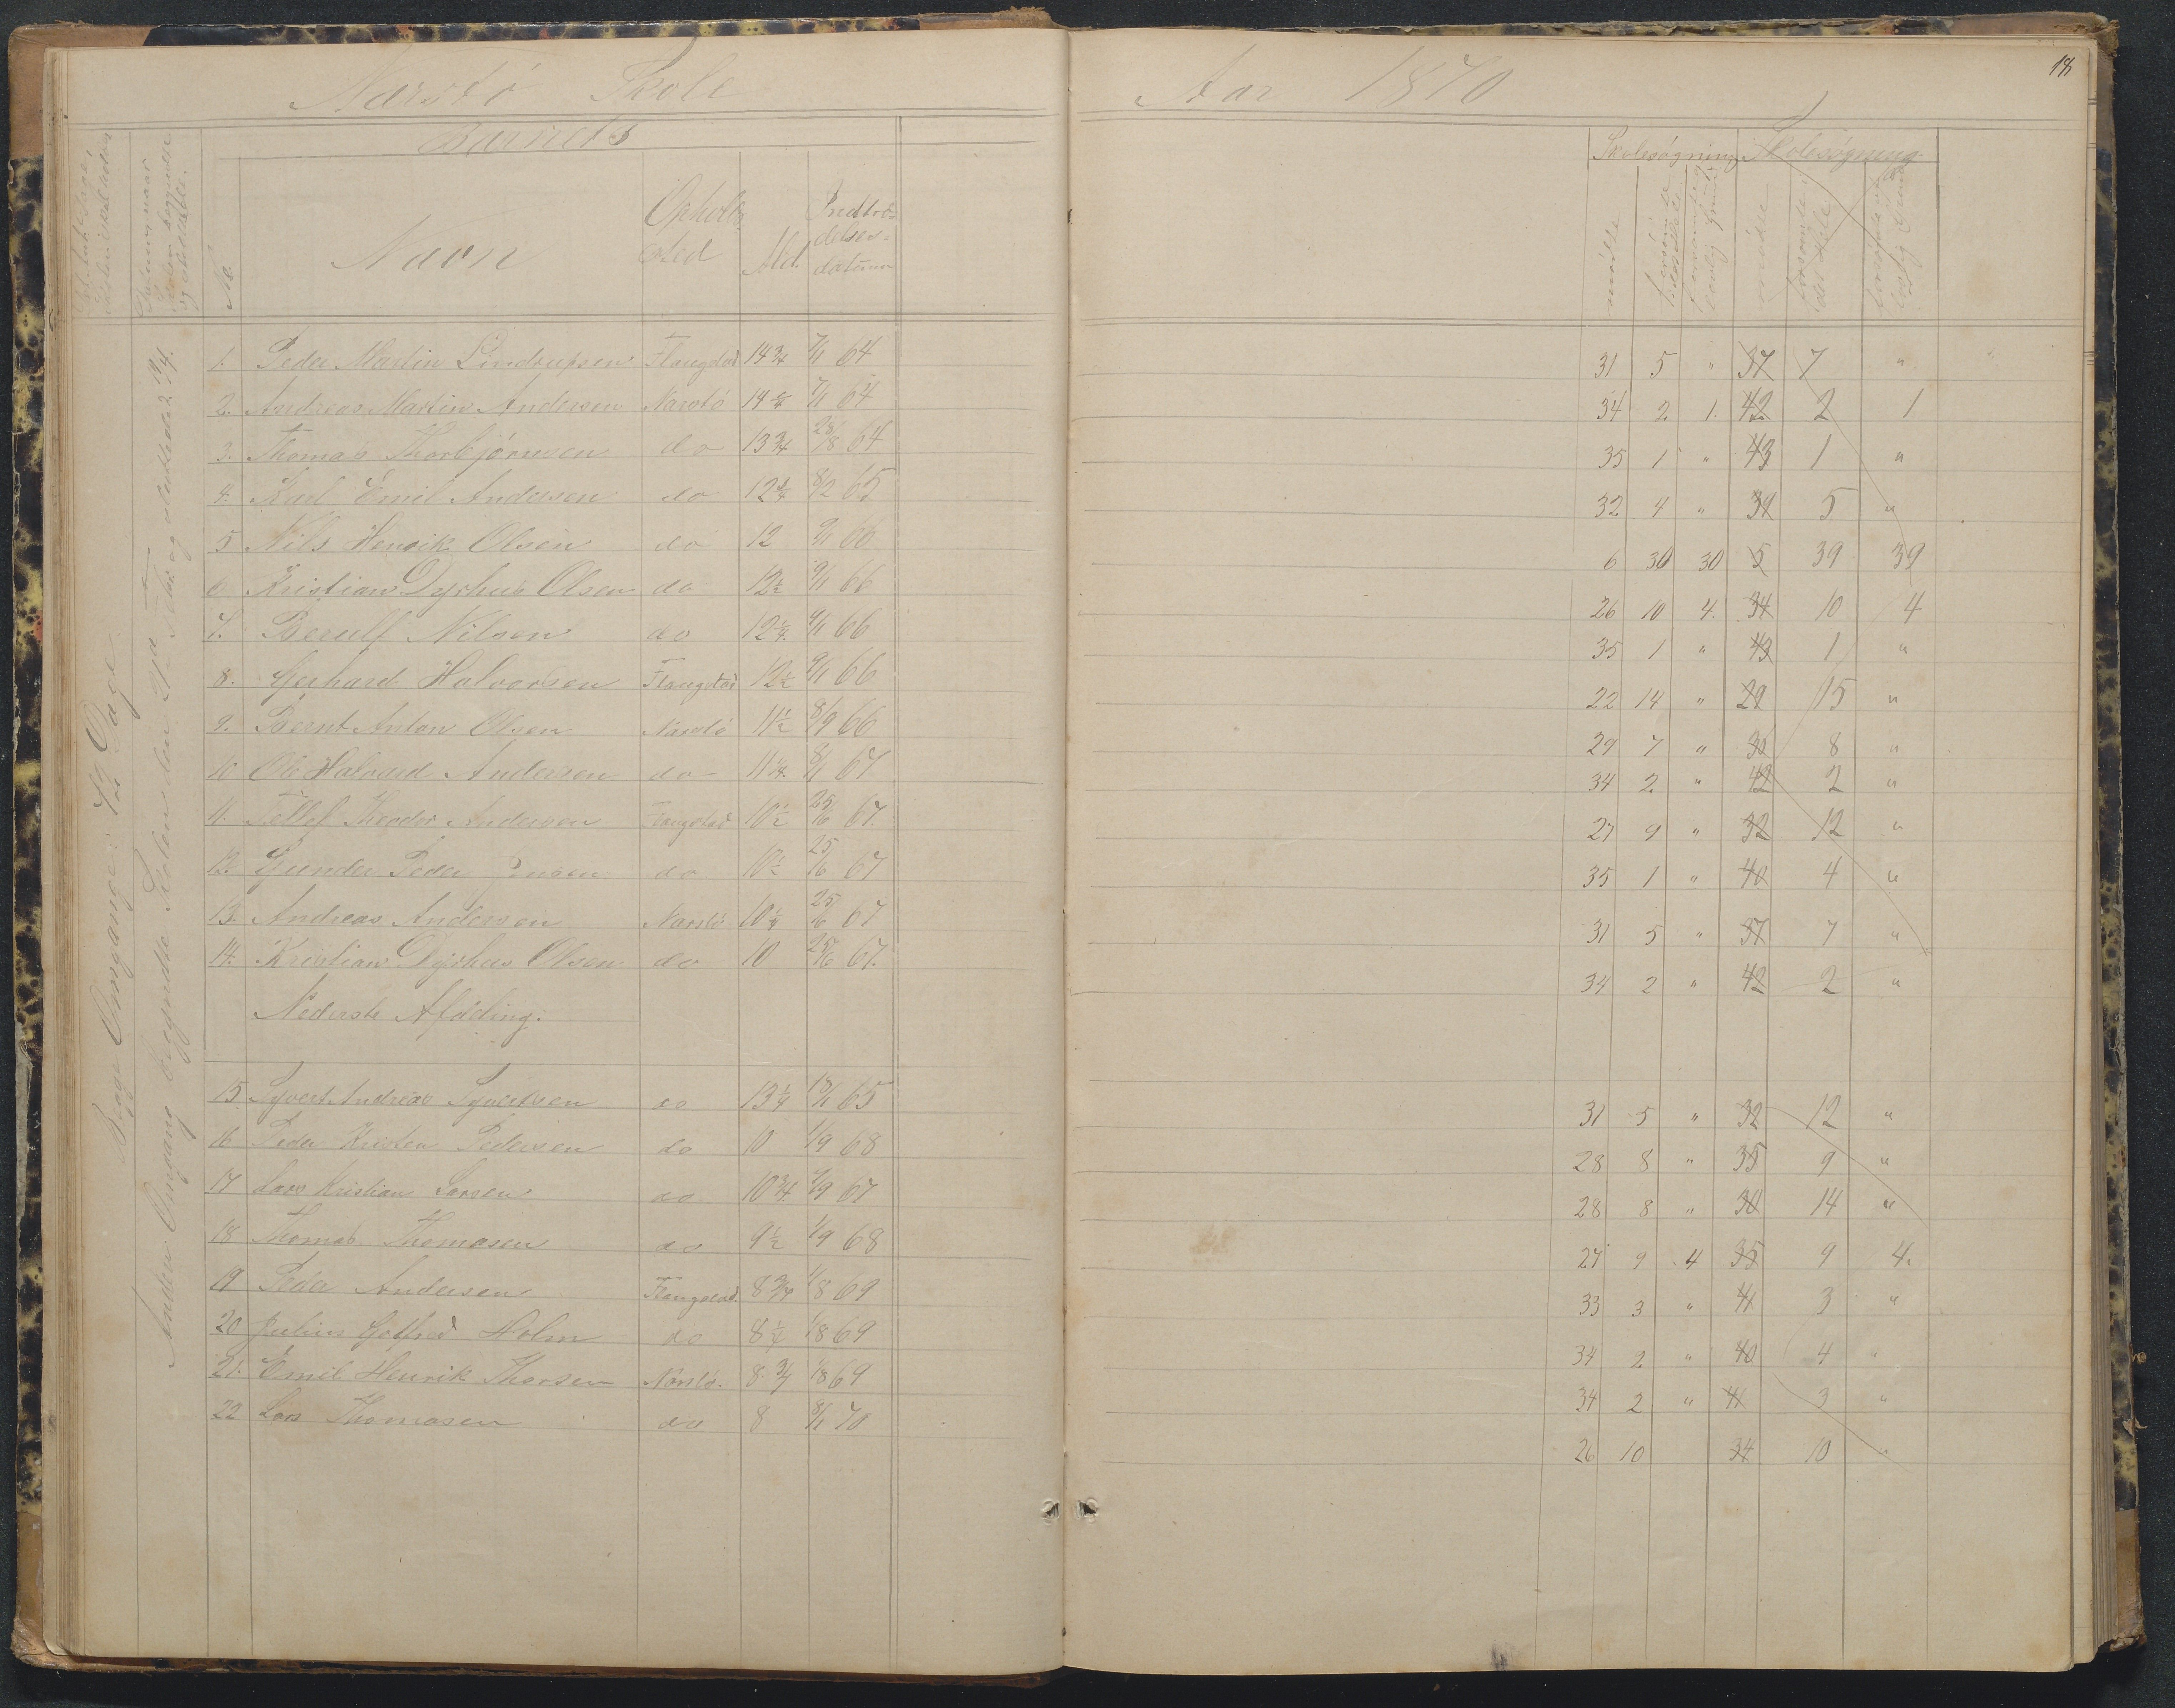 Narestø Skole
Aar 1870
18
Barnets
Skolesøgning Skolesøgning
No. Navn Opholdssted Ald. Indtrædelsesdatum mødte forsømte det Hele mødte forsømte det Hele
Begge Omgange: 72 Dage
Anden Omgang begyndte Skolen den
1. Peder Martin Lindtrupsen Flangstad 14 3/4 7/1 64 31 5 " 37 7 "
2. Andreas Martin Andersen Narestø 14 7/1 64 34 2. 1. 42 2 1
3. Thomas Thorbjørnsen do 13 3/4 28/8 64 35 1 " 43 1 "
4. Karl Emil Andersen do 12 3/4 8/2 65 32 4 " 39 5 "
5 Nils Henrik Olsen do 12 9/1 66 6 30 30 5 39 39
6 Kristian Dyrhus Olsen do 12 1/2 9/1 66 26 10 4. 34 10 4
7. Berulf Nilsen do 12 1/4. 9/1 66 35 1 " 43 1 "
8. Gerhard Halvorsen Flangstad 12 1/2 9/1 66 22 14 " 29 15 "
9. Bernt Anton Olsen Narestø 11 1/2 8/9 66 29 7 " 36 8 "
10 Ole Halvard Andersen do - 11 1/4. 8/1 67 34 2. " 42 2 "
11. Tellef Theodor Andersen Flangstad 10 1/2 25/6 67. 27 9 " 32 12 "
12. Gunder Peder Jensen do 10 1/2 25/6 67 35 1 " 40 4 "
13. Andreas Andersen Narestø 10 1/4 25/6 67 31 5 " 37 7 "
14. Kristian Dyrhus Olsen do 10 25/6 67. 34 2 " 42 2 "
Nederste Afdeling.
15 Syvert Andreas Syvertsen do 13 1/4 13/1 65 31 5 " 32 12 "
16 Peder Kristen Pedersen do 10 1/9 68 28 8 " 35 9 "
17 Lars Kristian Larsen do 10 3/4 2/9 67 28 8 " 30 14 "
18 Thomas Thomasen do 9 1/2 1/9 68 27 9 4 35 9 4.
19 Peder Andersen Flangstad. 8 3/4 1/8 69 33 3 " 41 3 "
20 Julius Gotfred Holm do 8 1/2 1/8 69 34 2 " 40 4 "
21. Emil Henrik Thorsen Narestø. 8. 3/4 1/8 69 34 2 " 41 3 "
22 Lars Thomasen do 8 8/1 70 26 10 34 10 "